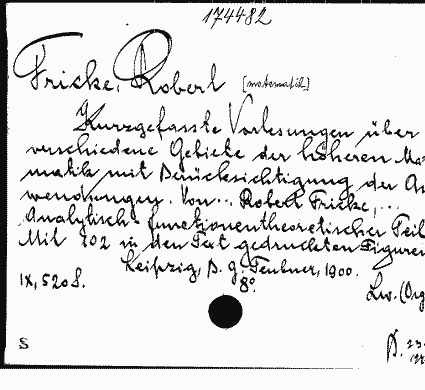 174482
Fricke, Robert [matematik]
Kurzgefasste Vorlesungen über
verschiedene Gebiete der höheren Ma-
matik mit Berücksichtigung der An
wendungen. Von... Robert Fricke,...
Analytisch-functionentheoretischer Teil
Mit 102 in den Text gedruckten Figuren
Leipzig, B. G. Teubner, 1900.
IX, 520 S. 8º.
Lw. (Org
S